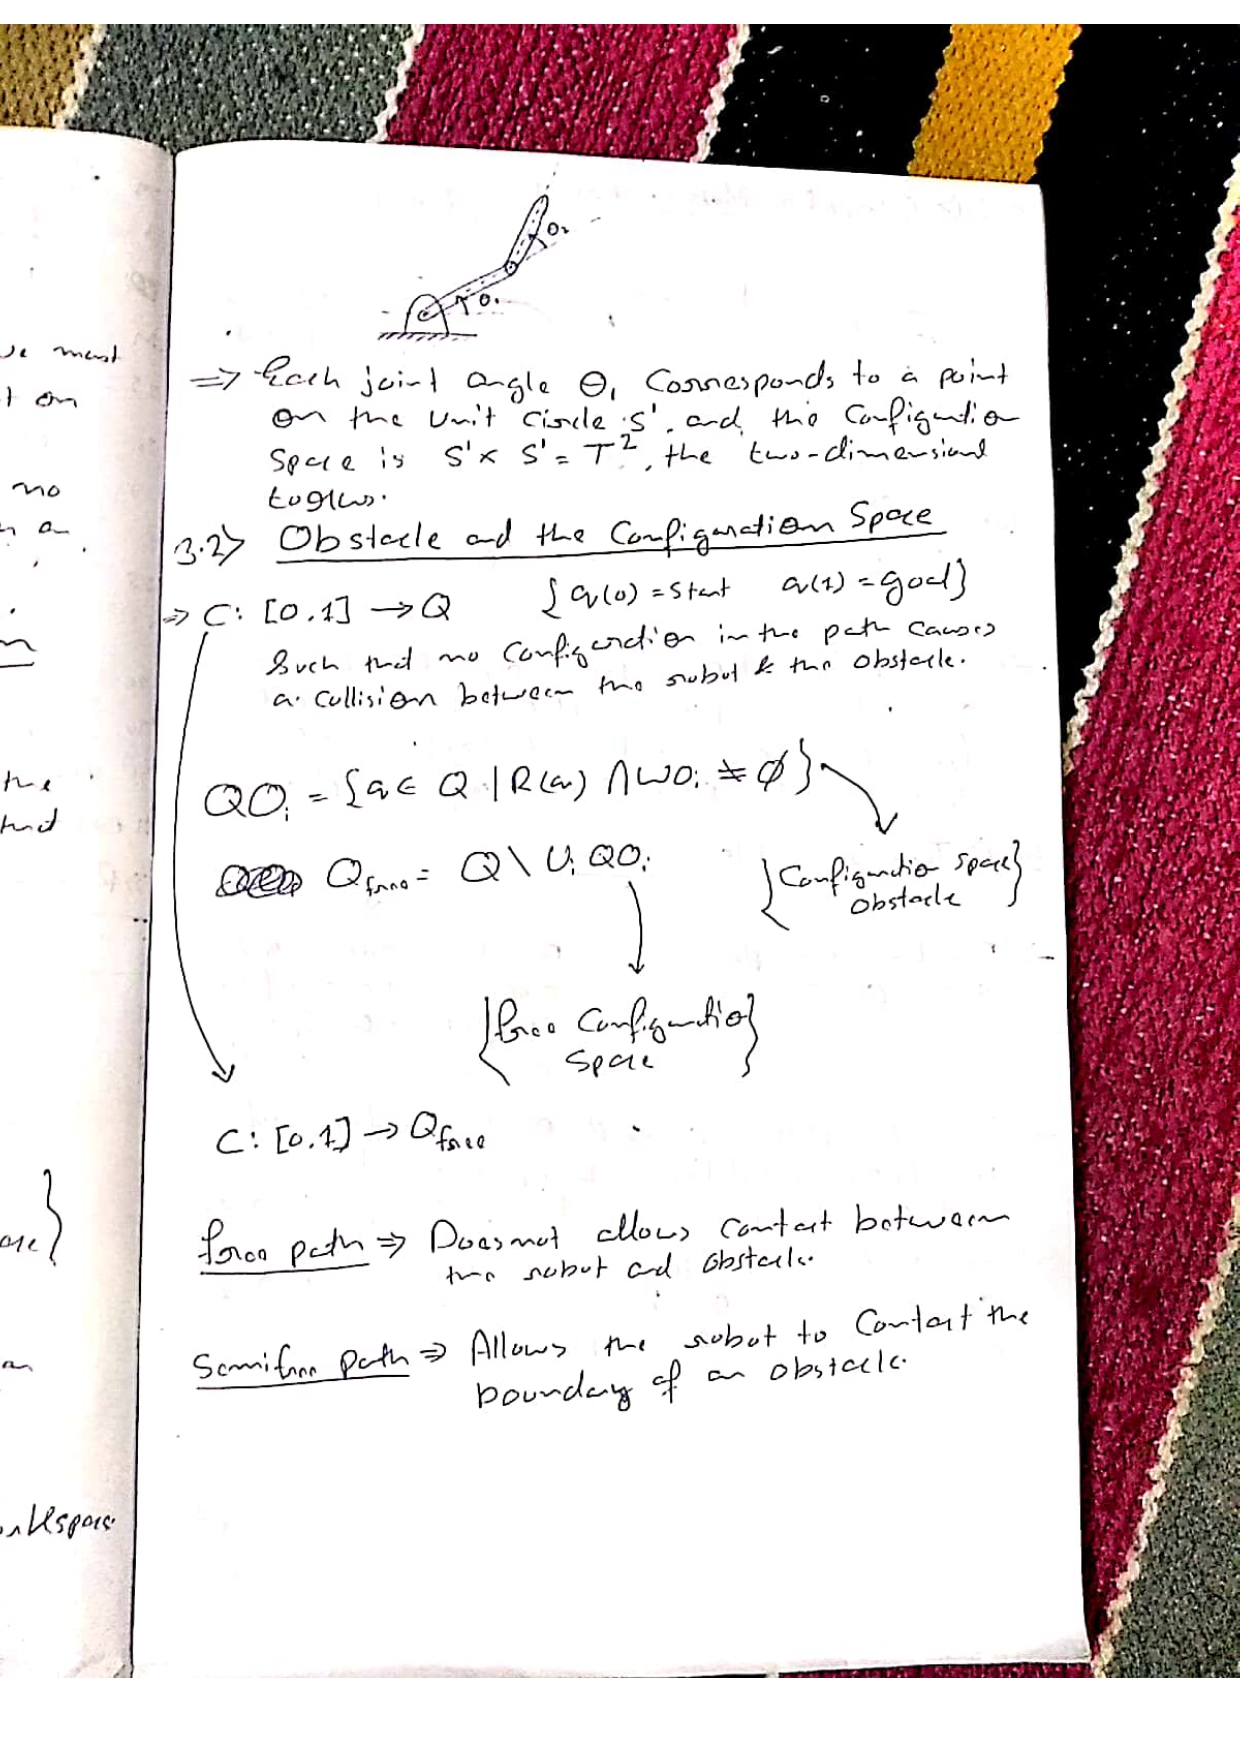 θ₂
θ₁
⇒ Each joint angle θ, Corresponds to a point
on the unit circle S¹, and the Configuration
Space is S¹ × S¹ = T², the two-dimensional
torus.
3.2> Obstacle and the Configuration Space
⇒ C: [0,1] → Q {q(0) = Start q(1) = goal}
Such that no Configuration in the path causes
a Collision between the robot & the Obstacle.
QOᵢ = {q ∈ Q | R(q) ∩ WOᵢ ≠ ∅}
Q_free = Q \ ∪ᵢ QOᵢ
{Configuration Space}
Obstacle
{free Configuration}
Space
C: [0,1] → Q_free
free path ⇒ Does not allows Contact between
the robot and Obstacle.
Semifree path ⇒ Allows the robot to Contact the
boundary of an obstacle.
ve must
t on
no
n a
the
an